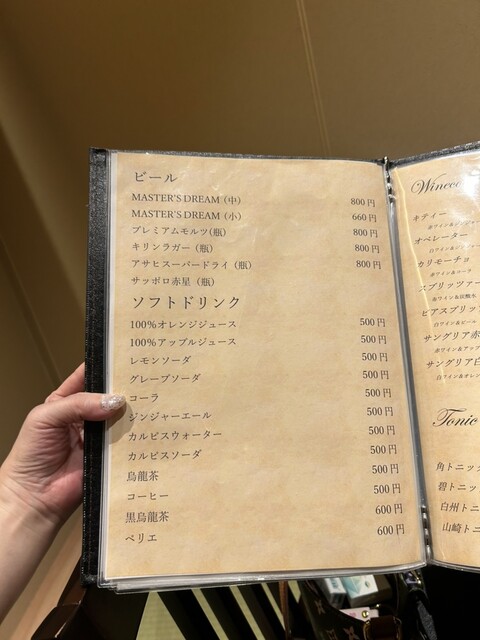 ビール
MASTER'S DREAM（中） 800円
MASTER'S DREAM（小） 660円
プレミアムモルツ(瓶) 800円
キリンラガー（瓶） 800円
アサヒスーパードライ（瓶） 800円
サッポロ赤星（瓶）
ソフトドリンク
100％オレンジジュース 500円
100％アップルジュース 500円
レモンソーダ 500円
グレープソーダ 500円
コーラ 500円
ジンジャーエール 500円
カルピスウォーター 500円
カルピスソーダ 500円
烏龍茶 500円
コーヒー 500円
黒烏龍茶 600円
ペリエ 600円
キティー
オペレーター
カリモーチョ
赤ワイン&コーラ
スプリッツァー
白ワイン&炭酸水
ビアスプリッツ
白ワイン&ビール
サングリア赤
赤ワイン&アップ
サングリア白
白ワイン&オレン
Tonic
角トニッ
碧トニッ
白州トニ
山崎トニ